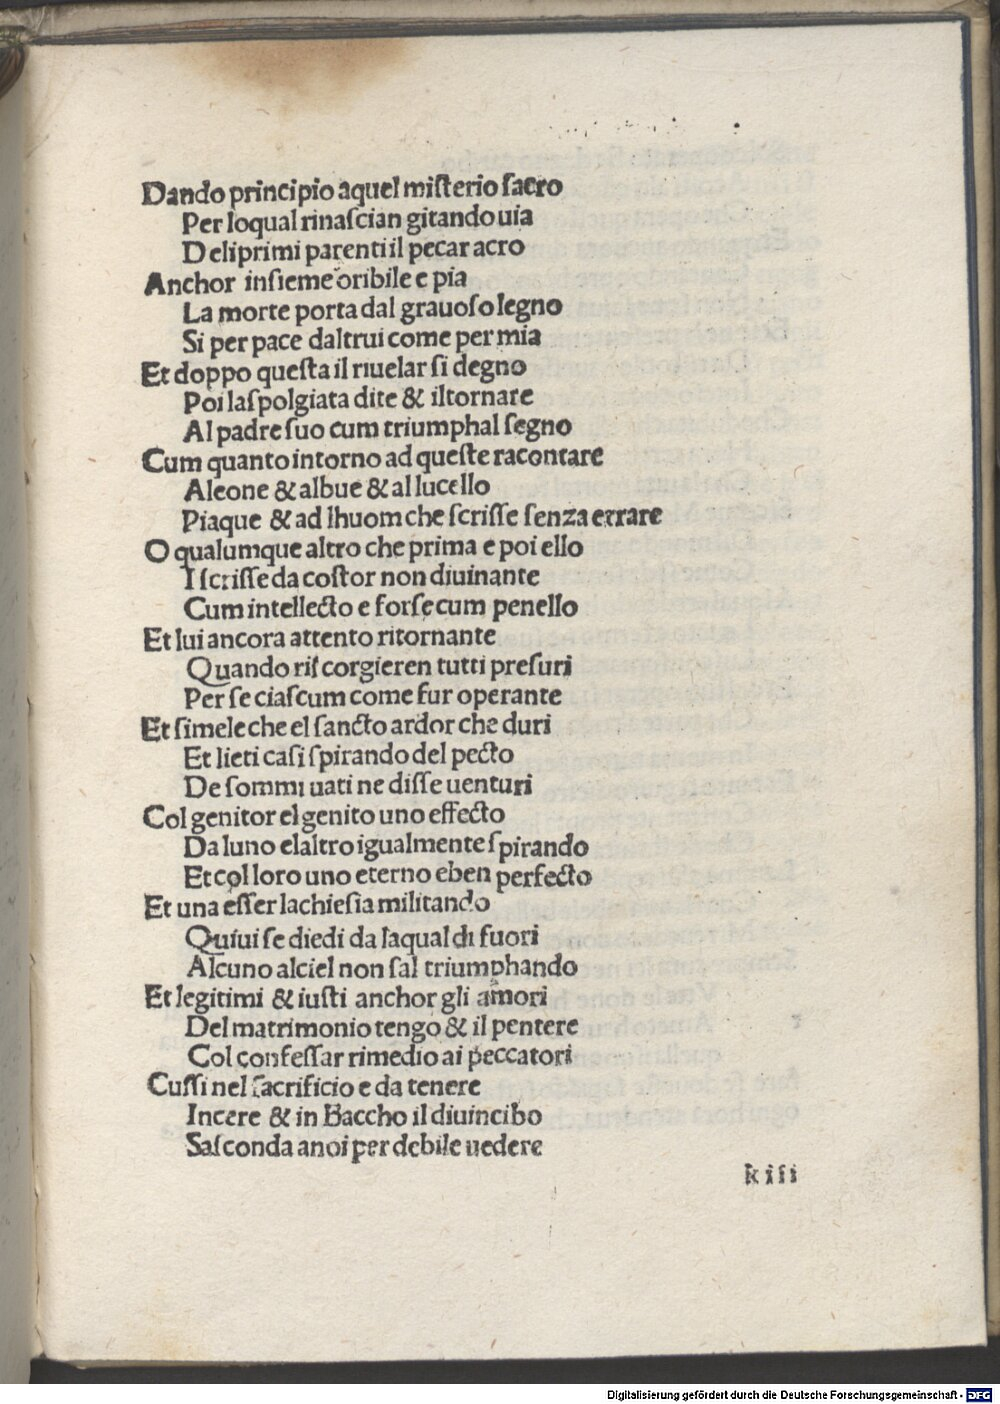 Dando principio aquel miſterio ſacro
Per loqual rinaſcian gitando uia
Deliprimi parenti il pecar acro
Anchor inſieme oribile e pia
La morte porta dal grauoſo legno
Si per pace daltrui come per mia
Et doppo queſta il riuelar ſi degno
Poi laſpolgiata dite & iltornare
Al padre ſuo cum triumphal ſegno
Cum quanto intorno ad queſte racontare
Aleone & albue & allucello
Piaque & ad lhuom che ſcriſſe ſenza errare
O qualumque altro che prima e poi ello
I ſcriſſe da coſtor non diuinante
Cum intellecto e forſe cum penello
Et lui ancora attento ritornante
Quando riſcorgieren tutti preſuri
Per ſe ciaſcum come fur operante
Et ſimele che el ſancto ardor che duri
Et lieti caſi ſpirando del pecto
De ſommi uati ne diſſe uenturi
Col genitor el genito uno effecto
Da luno elaltro igualmente ſpirando
Et col loro uno eterno eben perfecto
Et una eſſer lachieſia militando
Quiui ſe diedi da laqual di fuori
Alcuno alciel non ſal triumphando
Et legitimi & iuſti anchor gli amori
Del matrimonio tengo & il pentere
Col confeſſar rimedio ai peccatori
Cuſſi nel ſacrificio e da tenere
Incere & in Baccho il diuincibo
Saſconda anoi per debile uedere
k iii
Digitalisierung gefördert durch die Deutsche Forschungsgemeinschaft - DFG